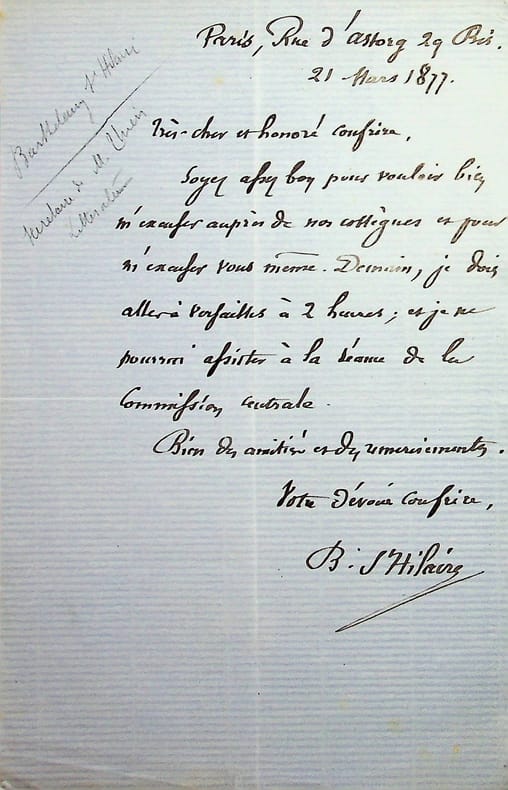 Paris, Rue d'Astorg 29 Bis.
21 Mars 1877.
Barthélemy St Hilaire
Secrétaire de M.
Littérateur
Très-cher et honoré confrère,
Soyez assez bon pour vouloir bien
m'excuser auprès de nos collègues et pour
m'excuser vous même. Demain, je dois
aller à Versailles à 2 heures ; et je ne
pourrai assister à la séance de la
Commission centrale.
Bien des amitiés et des remerciements.
Votre dévoué confrère,
B. St Hilaire